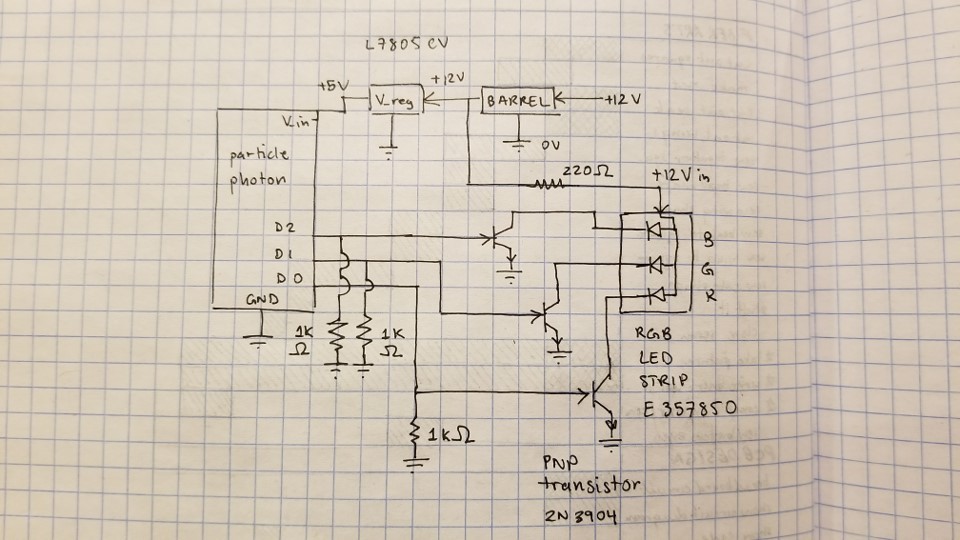 L7805CV
+5V
V_reg
+12V
BARREL
+12V
0V
V_in
particle
photon
220Ω
+12V in
D2
D1
D0
GND
B
G
R
1K
Ω
1K
Ω
RGB
LED
STRIP
E357850
1KΩ
PNP
transistor
2N3904